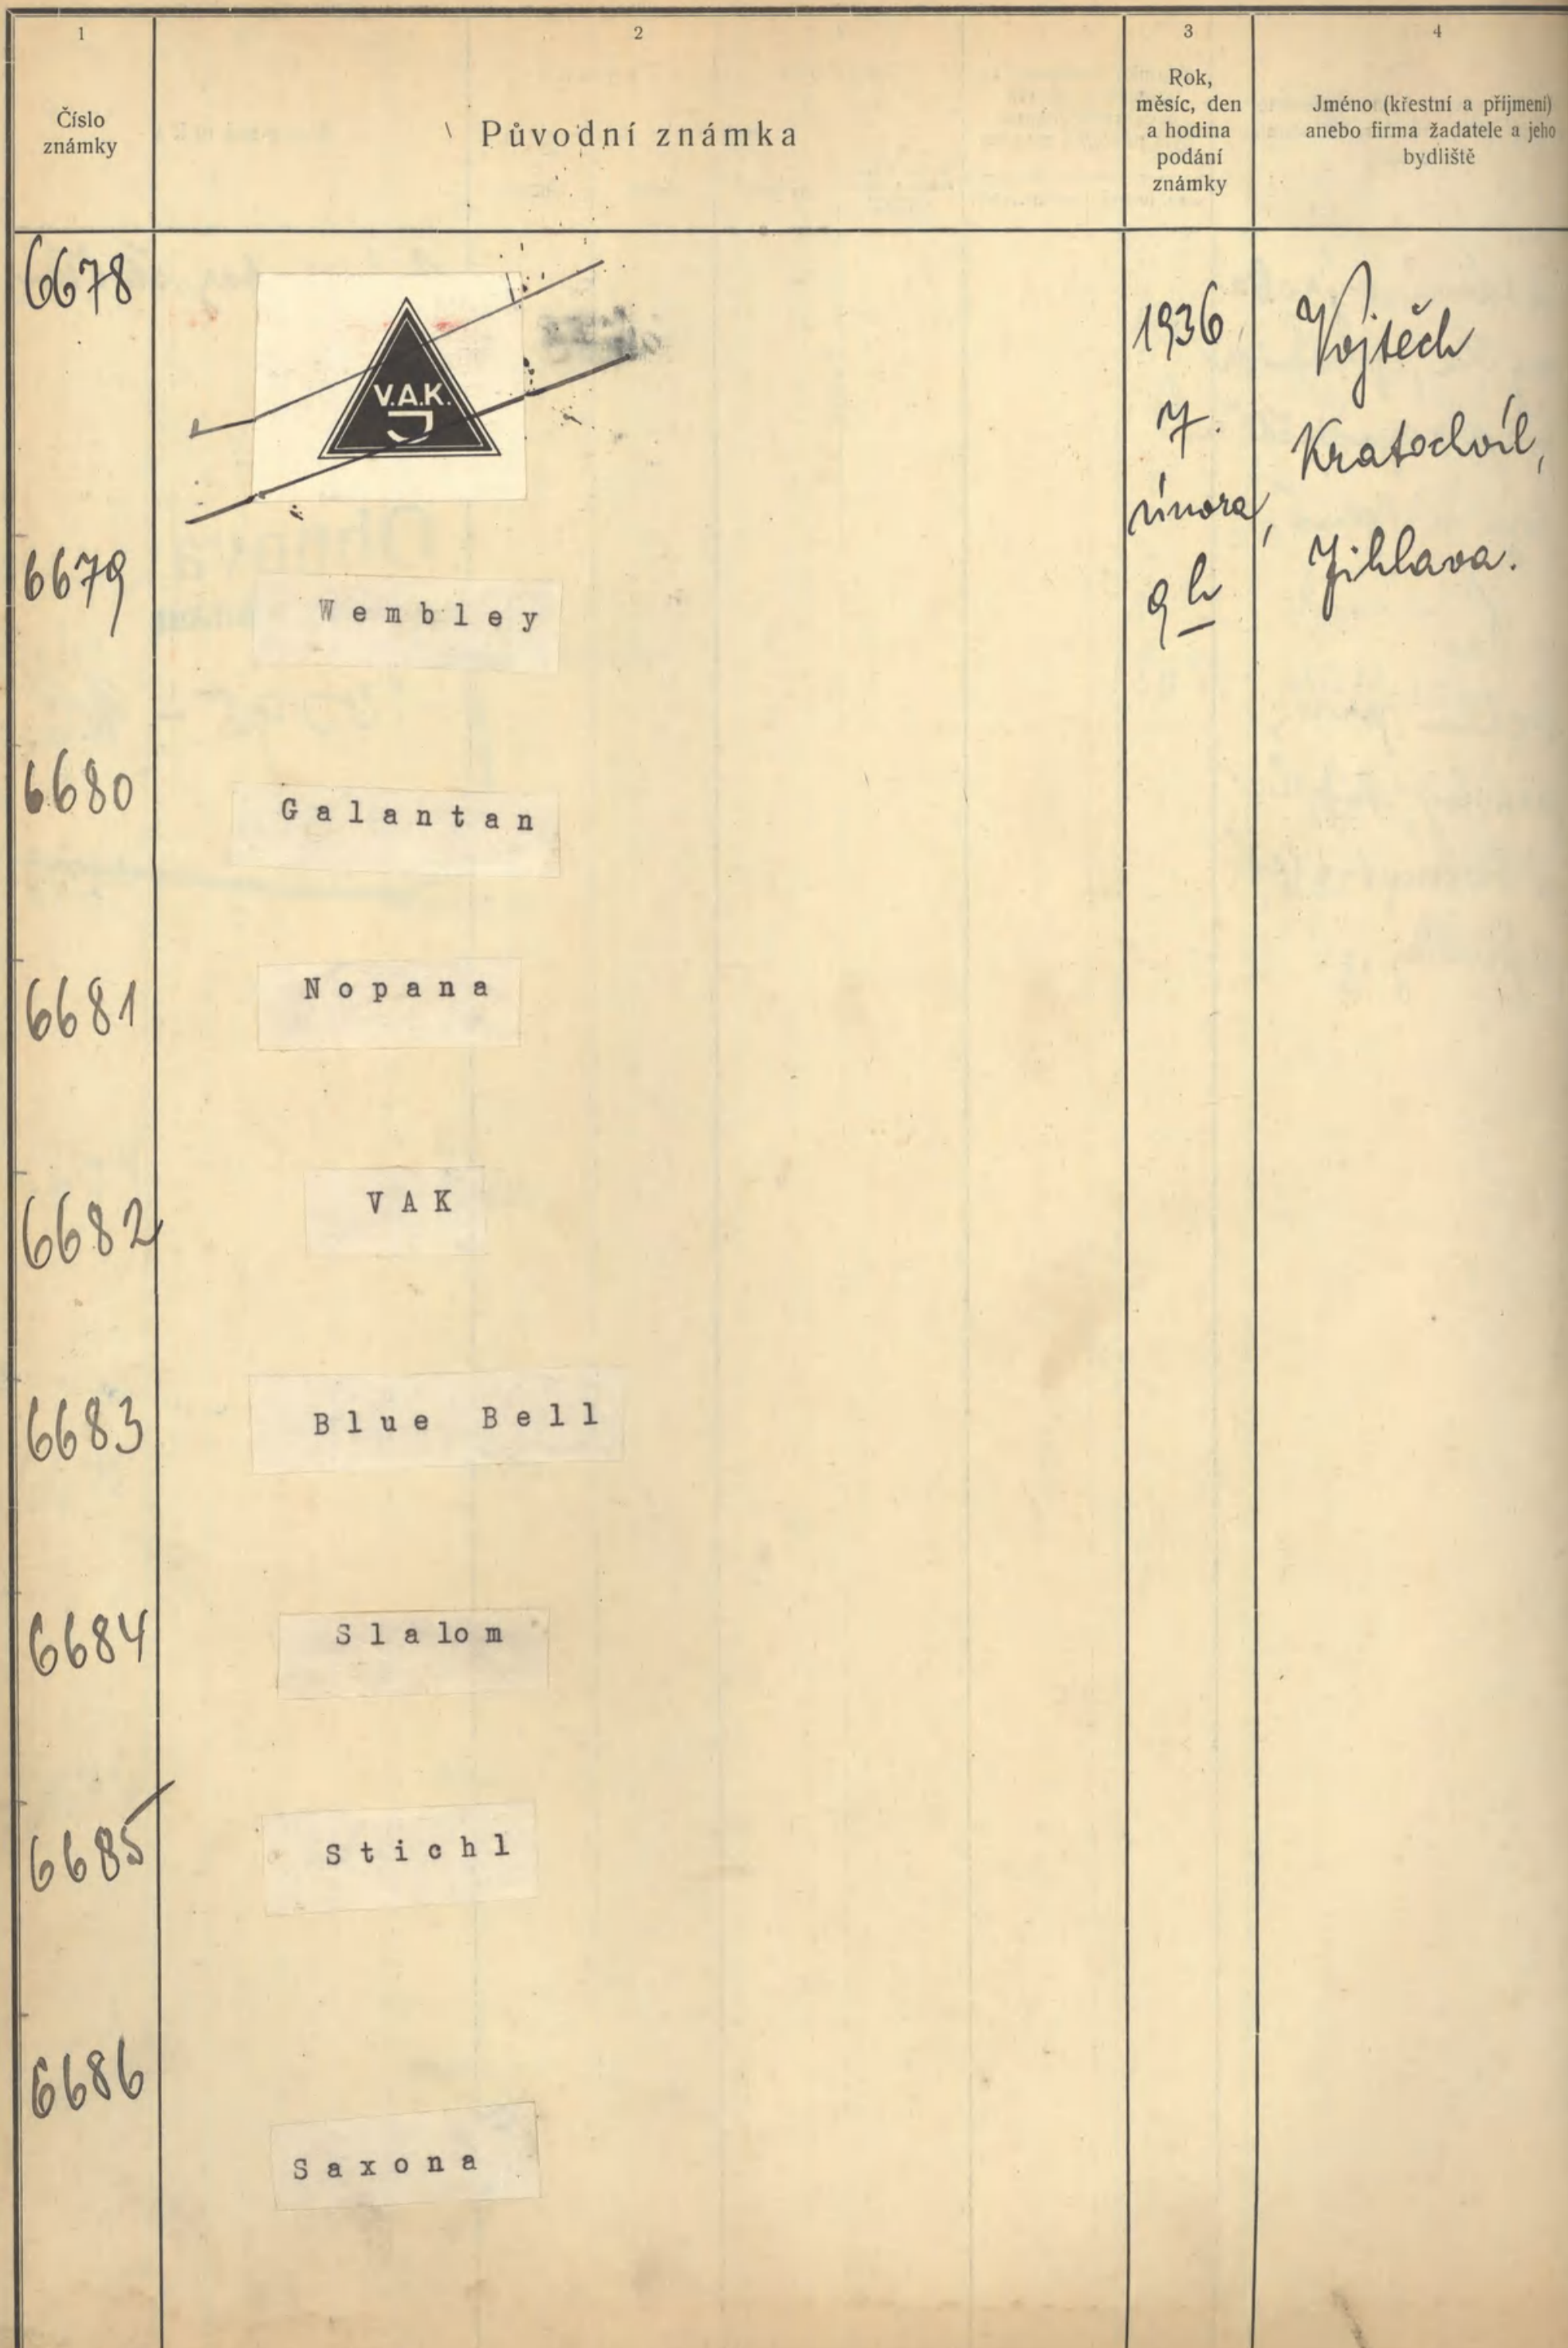 1
Číslo
známky
2
Původní známka
3
Rok,
měsíc, den
a hodina
podání
známky
4
Jméno (křestní a příjmení)
anebo firma žadatele a jeho
bydliště
6678
V.A.K.
J
1936
7.
února,
9h
Vojtěch
Kratochvíl,
Jihlava.
6679
Wembley
6680
Galantan
6681
Nopana
6682
VAK
6683
Blue Bell
6684
Slalom
6685
Stichl
6686
Saxona